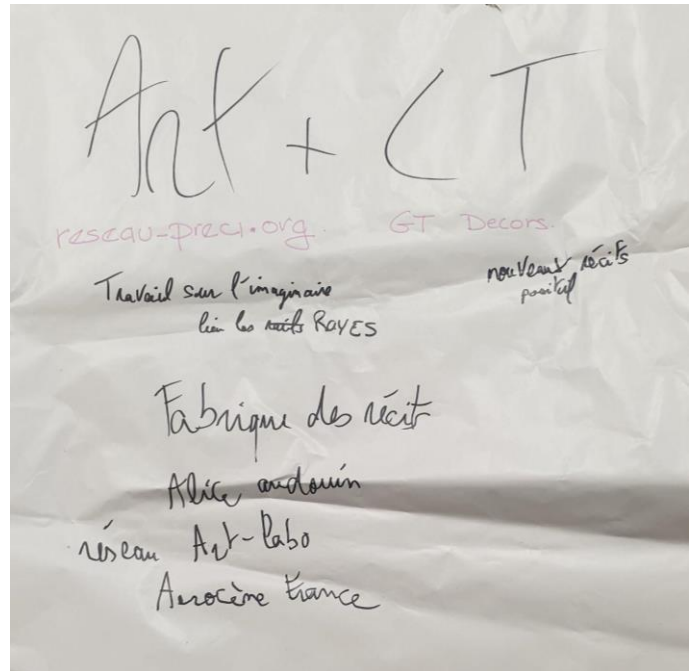 Art + CT
reseau-preci.org. GT Decors.
Travail sur l'imaginaire
nouveaux récits
positif
lien les récits RAYES
Fabrique des récit
Alice audouin
réseau Art-labo
Aerocène France